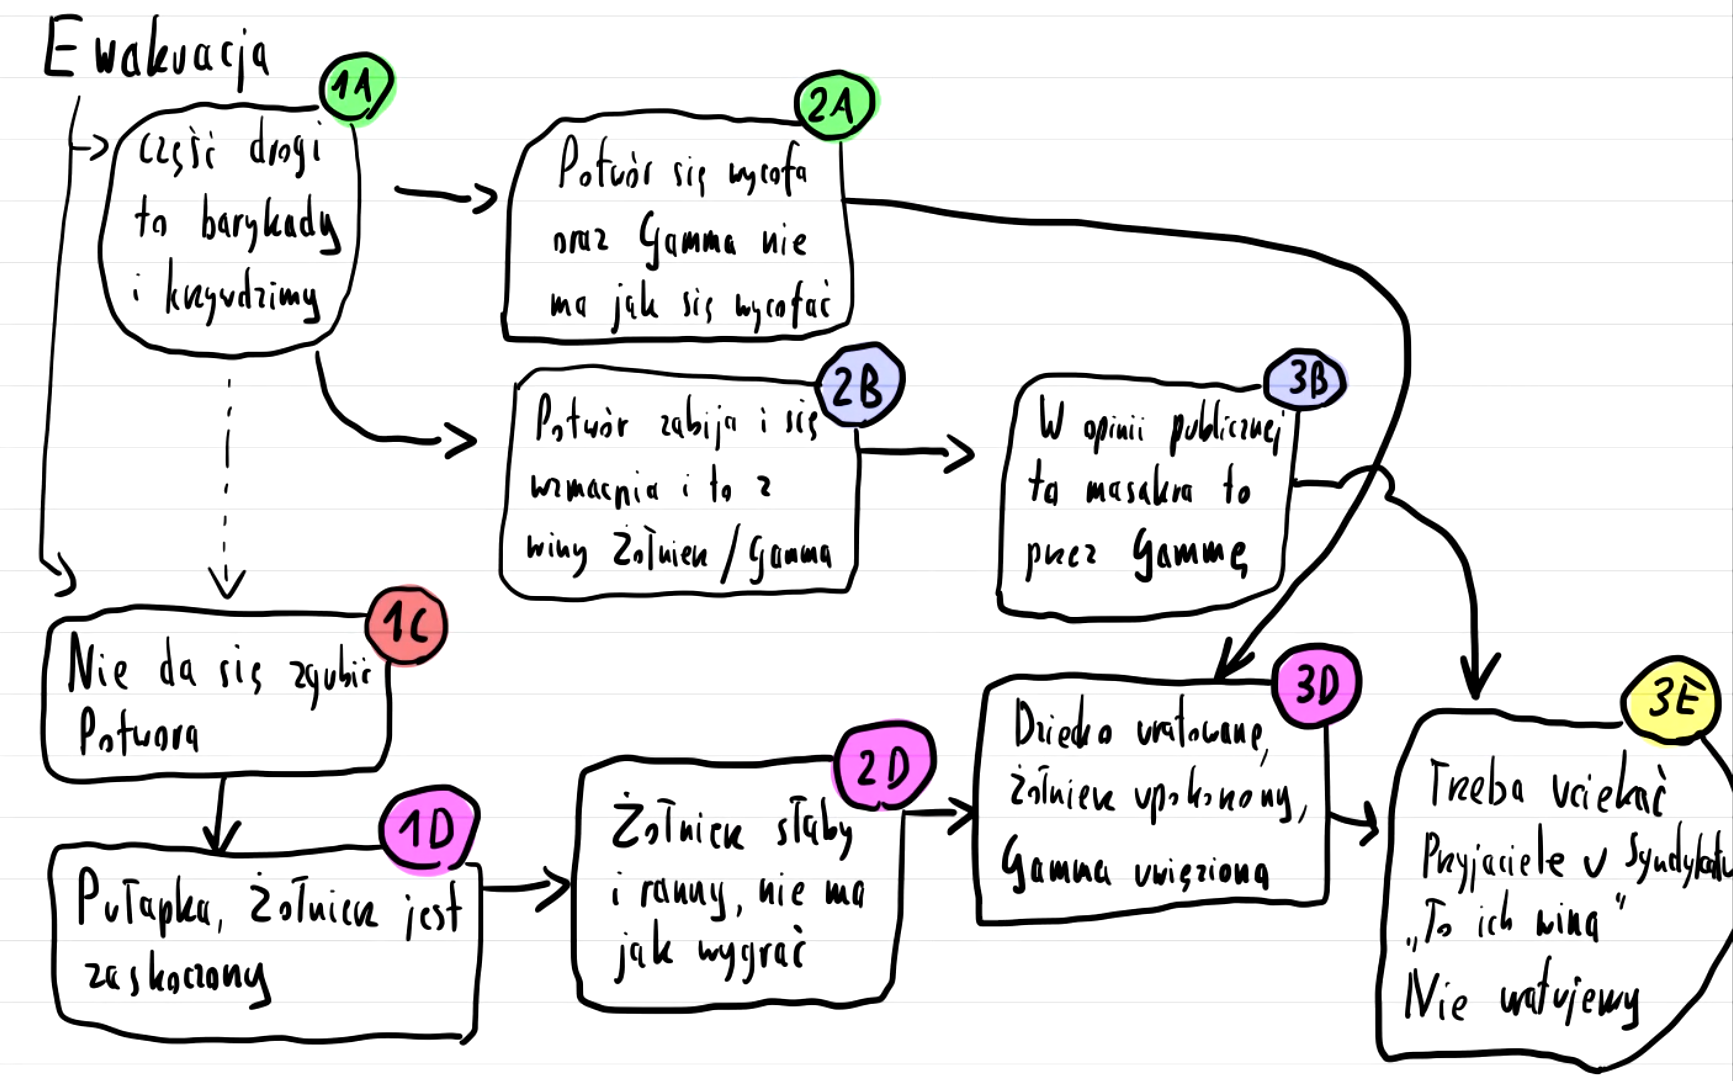 Ewakuacja
1A
część drogi
to barykady
i krzywdzimy
2A
Potwór się wycofa
oraz Gamma nie
ma jak się wycofać
2B
Potwór zabija i się
wzmacnia i to z
winy Żołnierz / Gamma
3B
W opinii publicznej
ta masakra to
przez Gammę
1C
Nie da się zgubić
Potwora
1D
Pułapka, Żołnierz jest
zaskoczony
2D
Żołnierz słaby
i ranny, nie ma
jak wygrać
3D
Dziecko uratowane,
żołnierz upokorzony,
Gamma uwięziona
3E
Trzeba uciekać
Przyjaciele v Syndykatu
„To ich wina"
Nie uratujemy